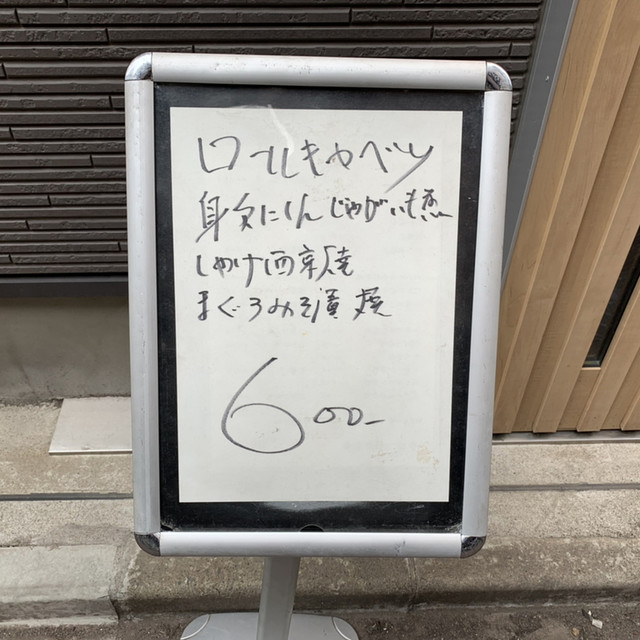 ロールキャベツ
身欠にしんじゃがいも煮
しゃけ西京焼
まぐろみそ漬焼
600-